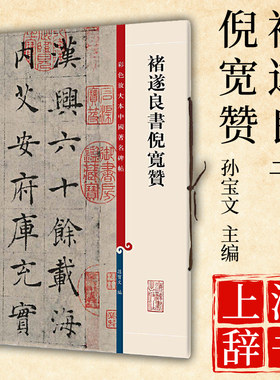 褚遂良
倪宽赞
孙宝文 主编
上海
辞书
彩色放大本中國著名碑帖
褚遂良書倪寬贊
孫寶文 編
漢興六十餘載海
内艾安府庫充實